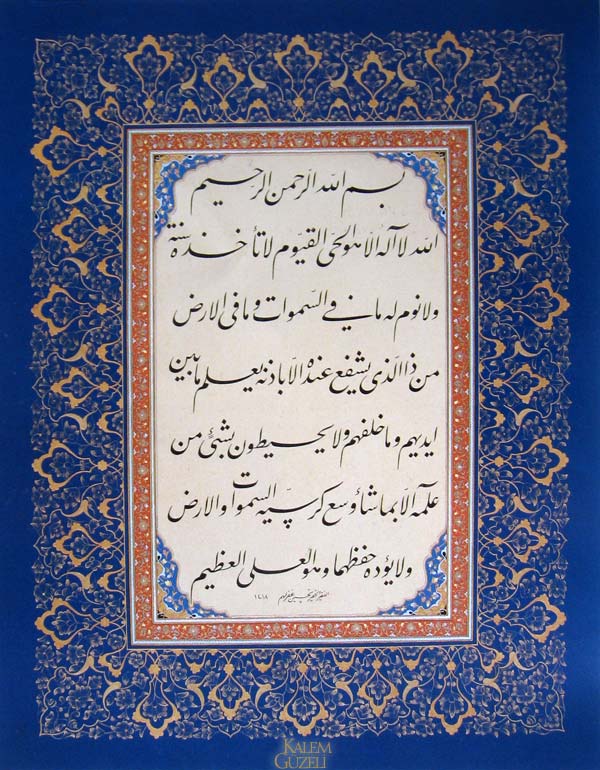 بسم الله الرحمن الرحيم
الله لا آله الا هو الحى القيوم لا تأخذه سنة
ولا نوم له ما فى السموات وما فى الارض
من ذا الذى يشفع عنده الا باذنه يعلم ما بين
ايديهم وما خلفهم ولا يحيطون بشئ من
علمه الا بما شاء وسع كرسيه السموات والارض
ولا يؤده حفظهما وهو العلى العظيم
KALEM
GÜZELİ